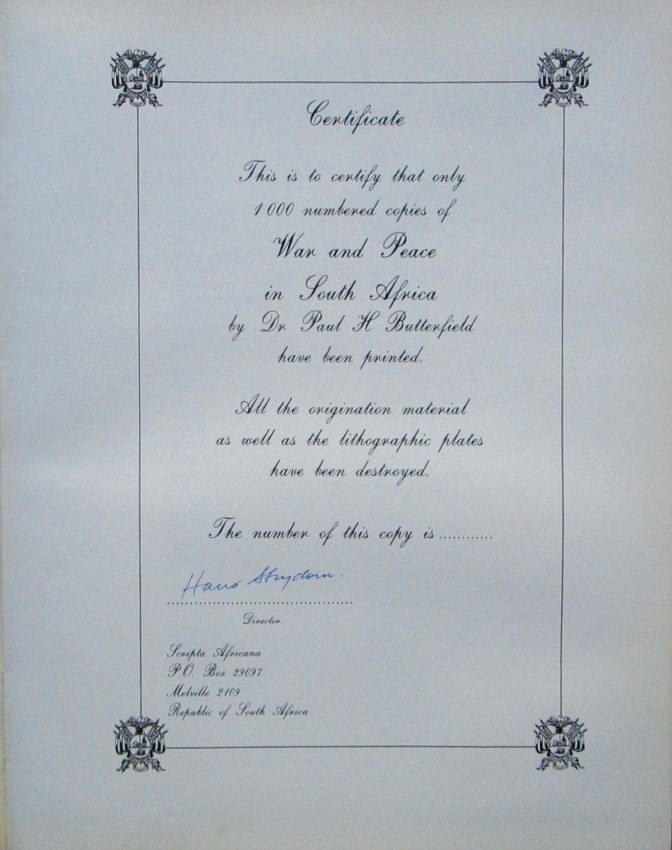 Certificate
This is to certify that only
1000 numbered copies of
War and Peace
in South Africa
by Dr Paul H Butterfield
have been printed.
All the origination material
as well as the lithographic plates
have been destroyed.
The number of this copy is ............
Hans Strydom.
Director
Scripta Africana
P.O. Box 29097
Melville 2109
Republic of South Africa